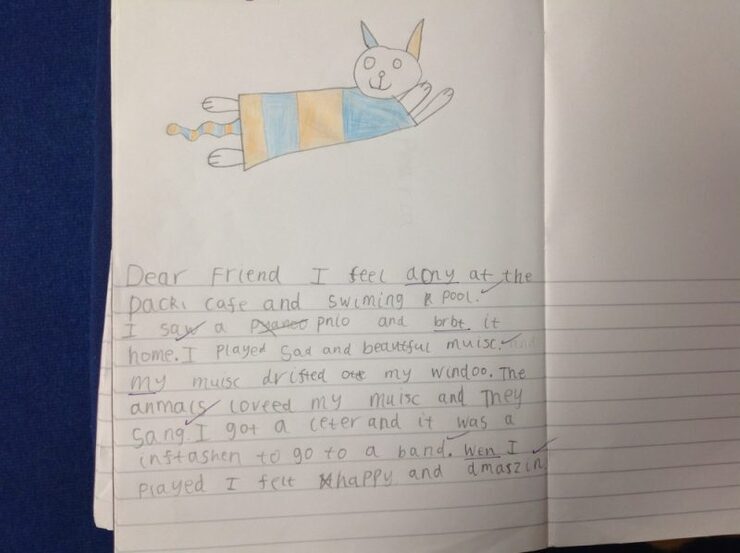 Dear Friend I feel aony at the
Parck cafe and swiming R pool.
I saw a pyanoo pnio and brbt it
home. I played sad and beautful muisc. and
my muisc drifted oute my windoo. The
anmals loveed my muisc and They
sang. I got a leter and it was a
inftashen to go to a band. Wen I
played I felt happy and amaszin